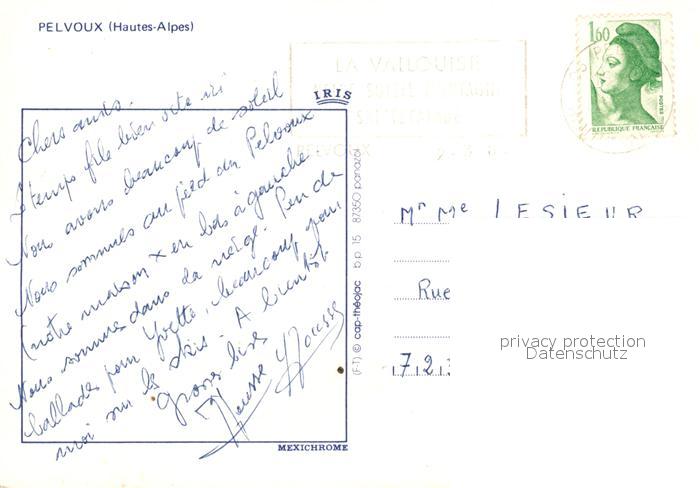 PELVOUX (Hautes-Alpes)
LA VALLOUISE
PELVOUX
1,60
POSTES
REPUBLIQUE FRANÇAISE
IRIS
Chers amis.
Le temps file bien vite ici
Nous avons beaucoup de soleil
Nous sommes au pied du Pelvoux
(notre maison x en bas à gauche
Nous sommes dans la neige. Peu de
ballades pour Yvette, beaucoup pour
moi sur les skis. A bientôt
Gross bise
MEXICHROME
(F-T) © cap-théojac b.p. 15 87350 panazol
Mr Me LESIEUR
Rue
72
privacy protection
Datenschutz